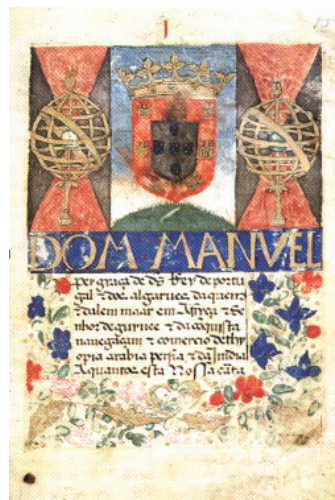 I
DOM MANVEL
per graça de ds Rey de portu
gal & dos algarues daquem
& dalem maar em Affryca & Se
nhor de guynee & da cõquista
nauegaçam & comercio dethy
opia arabia persia & da Jndia
A quantos esta Nossa